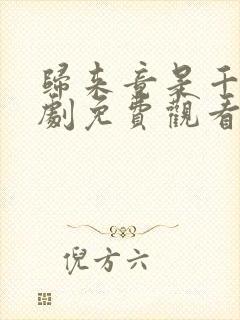 歸來章呆千
劇免費觀看
倪方六